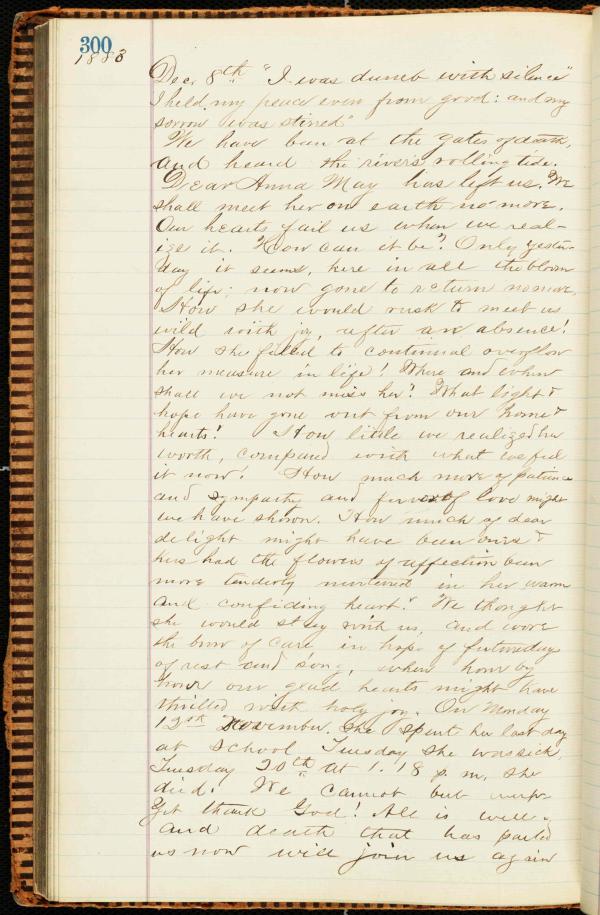 300
1883
Dec, 8th "I was dumb with silence"
I held my peace even from good: and my
sorrow was stirred"
We have been at the gates of death,
and heard the river's rolling tide.
Dear Anna May has left us. We
shall meet her on earth no more.
Our hearts fail us when we real-
ize it. "How can it be"? Only yester-
day it seems, here in all the bloom
of life; now gone to return no more,
How she would rush to meet us
wild with joy, after an absence!
How she filled to continual overflow
her measure in life! Where and when
shall we not miss her? What light &
hope have gone out from our home &
hearts! How little we realized her
worth, compared with what we feel
it now! How much more of patience
and sympathy and of love might
we have shown. How much of dear
delight might have been ones &
hers had the flowers of affection been
more tenderly nurtured in her warm
and confiding heart! We thought
she would stay with us, and wore
the brow of care in hope of future days
of rest and song, when hour by
hour our glad hearts might have
thrilled with holy joy. On Monday
12th November. She spent her last day
at School Tuesday she was sick,
Tuesday 20th at 1.18 p.m. she
died! We cannot but weep-
Yet thank God! All is well,
and death that has parted
us now will join us again